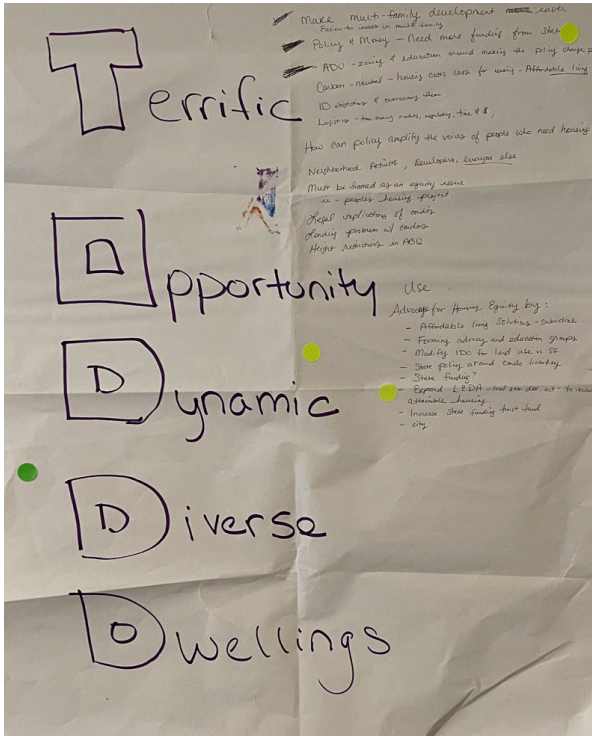 Make multi-family development easier
Easier to invest in multi family
Policy & Money - Need more funding from State
- ADU - zoning & education around making the policy change
Terrific
Carbon-neutral - housing costs less for living - Affordable living
ID objectors & overcoming them
Logistics - too many codes, regulatory, time & $,
How can policy amplify the voices of people who need housing
Neighborhood Activists, Developers, everyone else
Must be framed as an equity issue
ie - peoples housing project.
Legal implications of condos
Lending problem w/ condos
Height restrictions in ABQ
Opportunity
Use
Advocate for Housing Equity by:
- Affordable living Solutions -
- Forming advocacy and education groups
- Modify IDO for land use vs SF
- State policy around condo liability
- State funding?
Dynamic
- Expand LEDA - local econ dev act - to
attainable housing
- Increase State funding trust fund
- city
Diverse
Dwellings